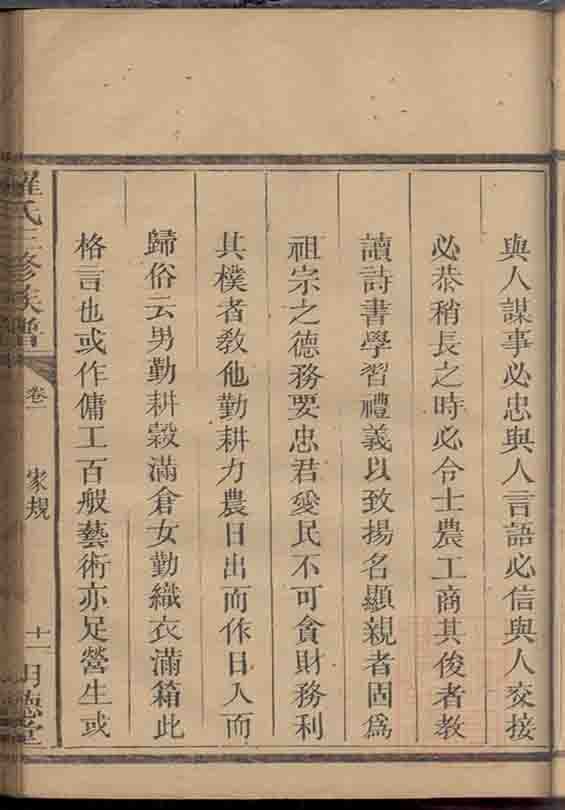 與人謀事必忠與人言語必信與人交接
必恭稍長之時必令士農工商其俊者教
讀詩書學習禮義以致揚名顯親者固爲
祖宗之德務要忠君愛民不可貪財務利
其樸者教他勤耕力農日出而作日入而
歸俗云男勤耕穀滿倉女勤織衣滿箱此
格言也或作傭工百般藝術亦足營生或
羅氏三修族譜
卷一
家規
十一
明德堂